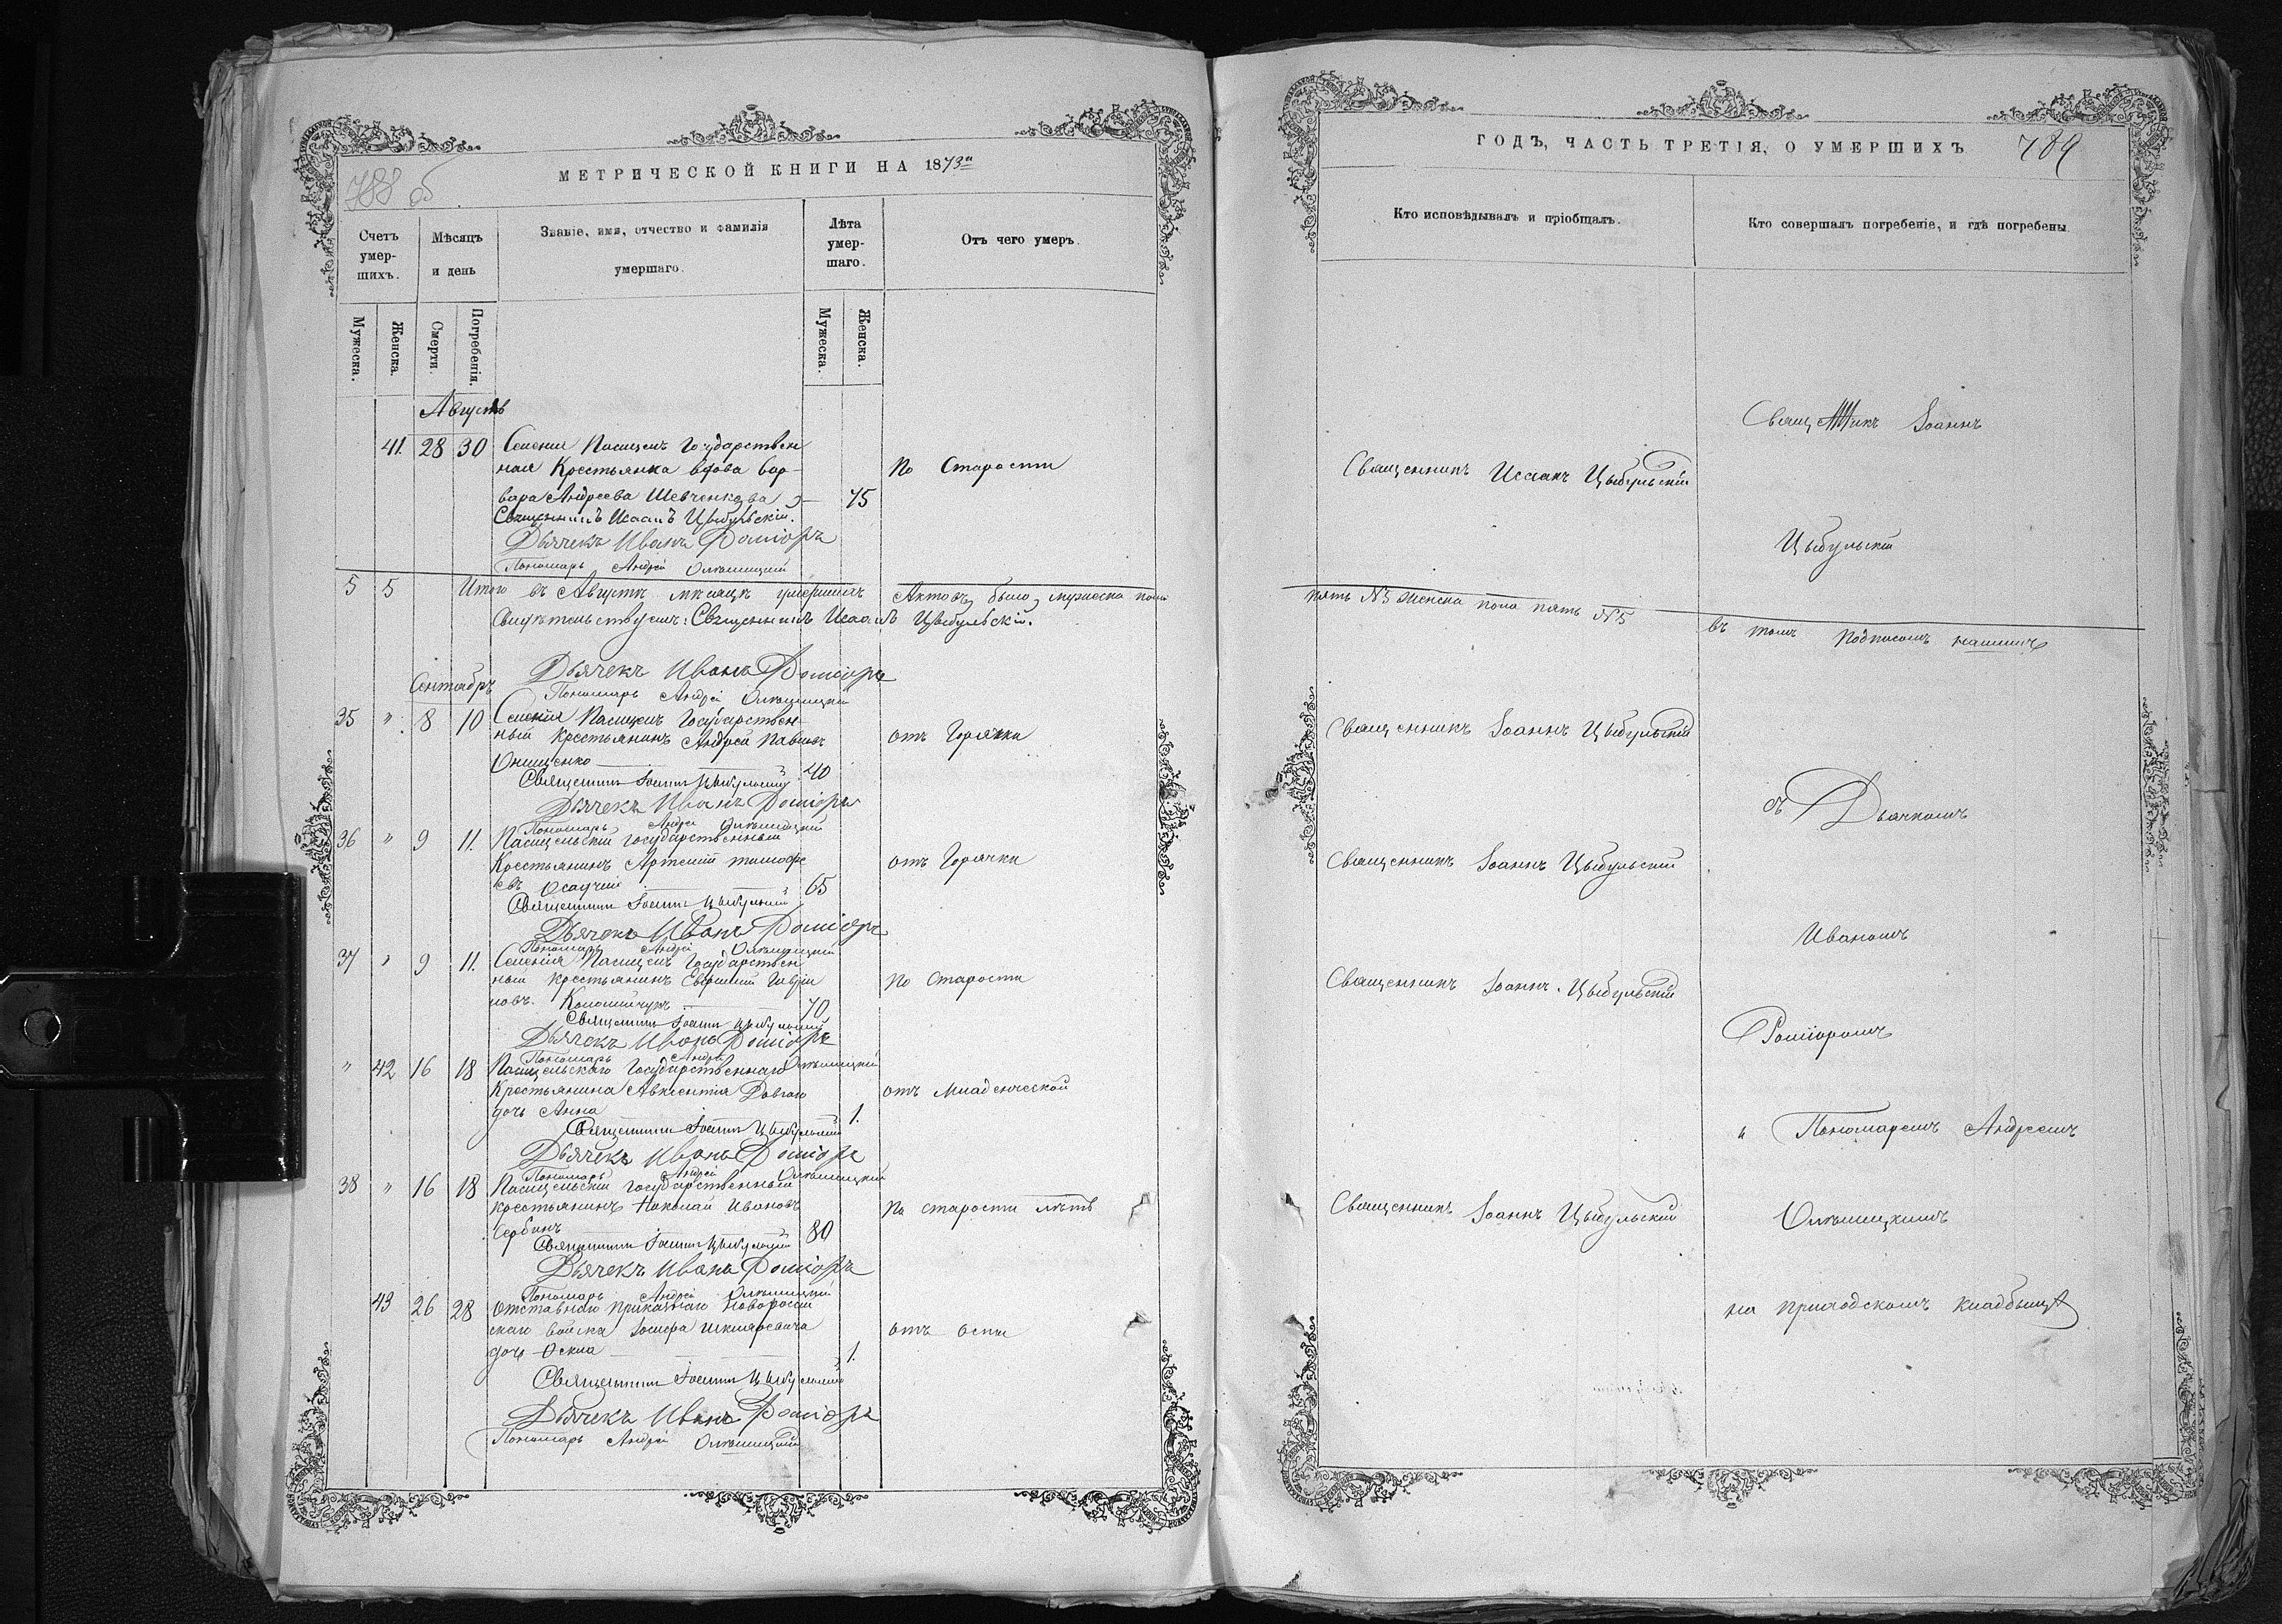 788 об
МЕТРИЧЕСКОЙ КНИГИ НА 1873й
Счетъ умер-шихъ.
Мѣсяцъ и день
Званіе, имя, отчество и фамилія умершаго.
Лѣта умер-шаго.
Отъ чего умеръ.
Мужеска.
Женска.
Смерти.
Погребенія.
Мужеска.
Женска.
Августъ
41. 28 30 Селенія Пасицелъ Государствен
ная Крестьянка вдова Вар-
вара Андреева Шевченкова — 75
По Старости
Священникъ Исаакъ Цыбульскій.
Дьячекъ Иванъ
Пономарь Андрей
5 5 Итого въ Августѣ мѣсяцѣ умершихъ Актовъ было, мужеска пола
Свидѣтельствуемъ: Священникъ Исаакъ Цыбульскій.
Дьячекъ Иванъ
Пономарь Андрей
Сентябръ
35 " 8 10 Селенія Пасицелъ Государствен-
ный крестьянинъ Андрей Павловъ
Онищенко — 40
отъ Горячки
Священникъ Іоаннъ Цыбульскій
Дьячекъ Иванъ
Пономарь Андрей
36 " 9 11. Пасицельскій государственный
Крестьянинъ Артемій тимофе
евъ 65
отъ Горячки
Священникъ Іоаннъ Цыбульскій
Дьячекъ Иванъ
Пономарь Андрей
37 " 9 11. Селенія Пасицелъ Государствен
ный крестьянинъ Евфимій Гаврі
ловъ. — 70
По Старости
Священникъ Іоаннъ Цыбульскій
Дьячекъ Иванъ
Пономарь Андрей
" 42 16 18 Пасицельскаго Государственнаго
Крестьянина Авксентія Довгаго
дочь Анна 1.
отъ Младенческой
Священникъ Іоаннъ Цыбульскій
Дьячекъ Иванъ
Пономарь Андрей
38 " 16 18 Пасицельскій государственный
крестьянинъ Николай Ивановъ
Сербинъ 80
По старости лѣтъ
Священникъ Іоаннъ Цыбульскій
Дьячекъ Иванъ
Пономарь Андрей
43 26 28 Отставнаго приказнаго Новоросій
скаго войска Іосифа
дочь — 1.
отъ оспы
Священникъ Іоаннъ Цыбульскій
Дьячекъ Иванъ
Пономарь Андрей
ГОДЪ, ЧАСТЬ ТРЕТІЯ, О УМЕРШИХЪ
789
Кто исповѣдывалъ и пріобщалъ.
Кто совершалъ погребеніе, и гдѣ погребены.
Священникъ Исаакъ Цыбульскій
Іоаннъ
Цыбульскій
пять №5 женска пола пять №5 въ томъ подписомъ нашимъ
Священникъ Іоаннъ Цыбульскій
съ Дьячкомъ
Священникъ Іоаннъ Цыбульскій
Иваномъ
Священникъ Іоаннъ Цыбульскій
и Пономаремъ Андреемъ
Священникъ Іоаннъ Цыбульскій
на приходскомъ кладбищѣ